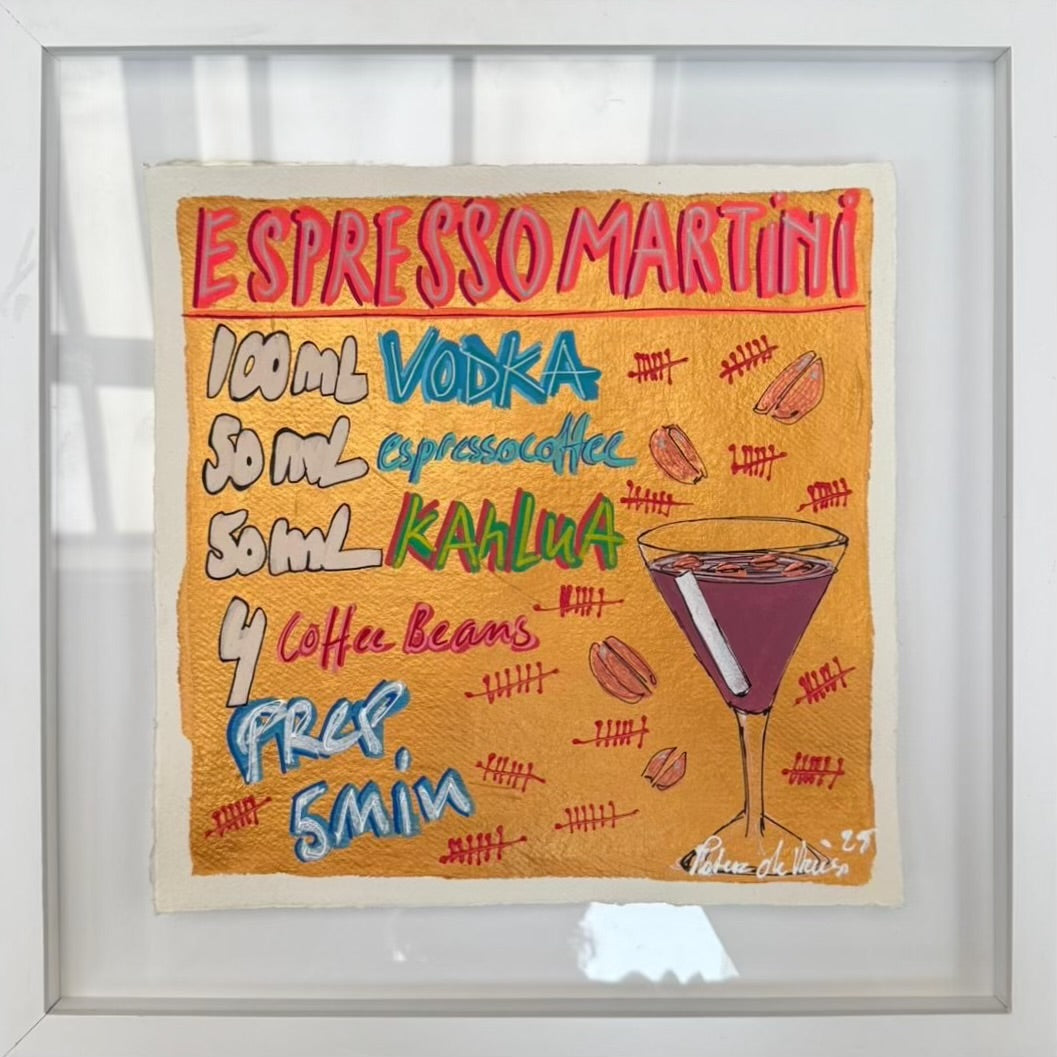 ESPRESSO MARTiNi
100mL VODKA
50 mL espressocoffee
50 mL KAhLuA
4 Coffee Beans
PReP
5Min
Peter de Vries 25